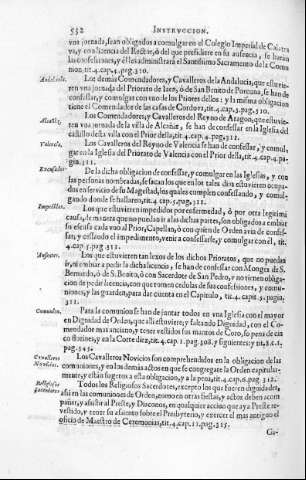 552 INSTRUCCION.
vna jornada, sean obligados a comulgar en el Colegio Imperial de Calatra
ua, y con licencia del Rector, ò del que presidiere en su ausencia, se haran
las confesiones, y èl les administrarà el Santissimo Sacramento de la Comu
nion, tit. 4. cap. 4. pag. 310.
Andaluzia. Los demàs Comendadores, y Cavalleros de la Andaluzia, que estuvie-
ren vna jornada del Priorato de Iaen, ò de San Benito de Porcuna, se han de
confessar, y comulgar con vno de los Priores dellos: y la misma obligacion
tiene el Comendador de las casas de Cordova, tit. 4. cap. 4. pag. 310.
Alcañiz. Los Comendadores, y Cavalleros del Reyno de Aragon, que estuvie-
ren vna jornada de la villa de Alcañiz, se han de confessar en la Iglesia del
castillo de la villa con el Prior della, tit. 4. cap. 4. pag. 311.
Valencia. Los Cavalleros del Reyno de Valencia se han de confessar, y comul-
gar en la Iglesia del Priorato de Valencia con el Prior della, tit. 4. cap. 4. pa-
gin. 311.
Escusados. De la dicha obligacion de confessar, y comulgar en las Iglesias, y con
las personas nombradas, se sacan los que en los tales dias estuvieren ocupa-
dos en servicio de su Magestad, los quales cumplen confessando, y comul-
gando donde se hallaren, tit. 4. cap. 5. pag. 311.
Impedidos. Los que estuvieren impedidos por enfermedad, ò por otra legitima
causa, de manera que no puedan ir a las dichas partes, son obligados a embiar
su escusa cada vno al Prior, Capellan, ò con quien de Orden avia de confes-
sar, y cessando el impedimento, venir a confessarse, y comulgar con èl, tit.
4. cap. 5. pag. 311.
Ausentes. Los que estuvieren tan lexos de los dichos Prioratos, que no puedan
ir, ni embiar a pedir la dicha licencia, se han de confessar con Monges de S.
Bernardo, ò de S. Benito, ò con Sacerdote de San Pedro, y no tienen obliga-
cion de pedir licencia, con que tomen cedulas de sus confessiones, y comu-
niones, y las guarden, para dar cuenta en el Capitulo, tit. 4. cap. 6. pagin.
311.
Comunion. Para la comunion se han de juntar todos en vna Iglesia con el mayor
en Dignidad de Orden, que alli estuviere, y faltando Dignidad, con el Co-
mendador mas anciano, y tener vestidos sus mantos de Coro, so pena de cin
co florines, y en la Corte diez, tit. 1. cap. 2. pag. 308. y siguientes; y tit. 8. c. 1.
pag. 345.
Cavalleros Novicios. Los Cavalleros Novicios son comprehendidos en la obligacion de las
comuniones, y en los demàs actos en que se congregare la Orden capitular-
mente, y estàn sugetos a esta obligacion, y a la pena, tit. 4. cap. 6. pag. 312.
Religiosos Sacerdotes. Todos los Religiosos Sacerdotes, excepto los que fueren dignidades,
assi en las comuniones de Orden, como en otras fiestas, y actos deben acom
pañar, y assistir al Preste, y Diaconos, en qualquier accion que aya Preste re-
vestido, y tener su assiento sobre el Presbyterio, y exercer el mas antiguo el
oficio de Maestro de Ceremonias, tit. 4. cap. 11. pag. 315.